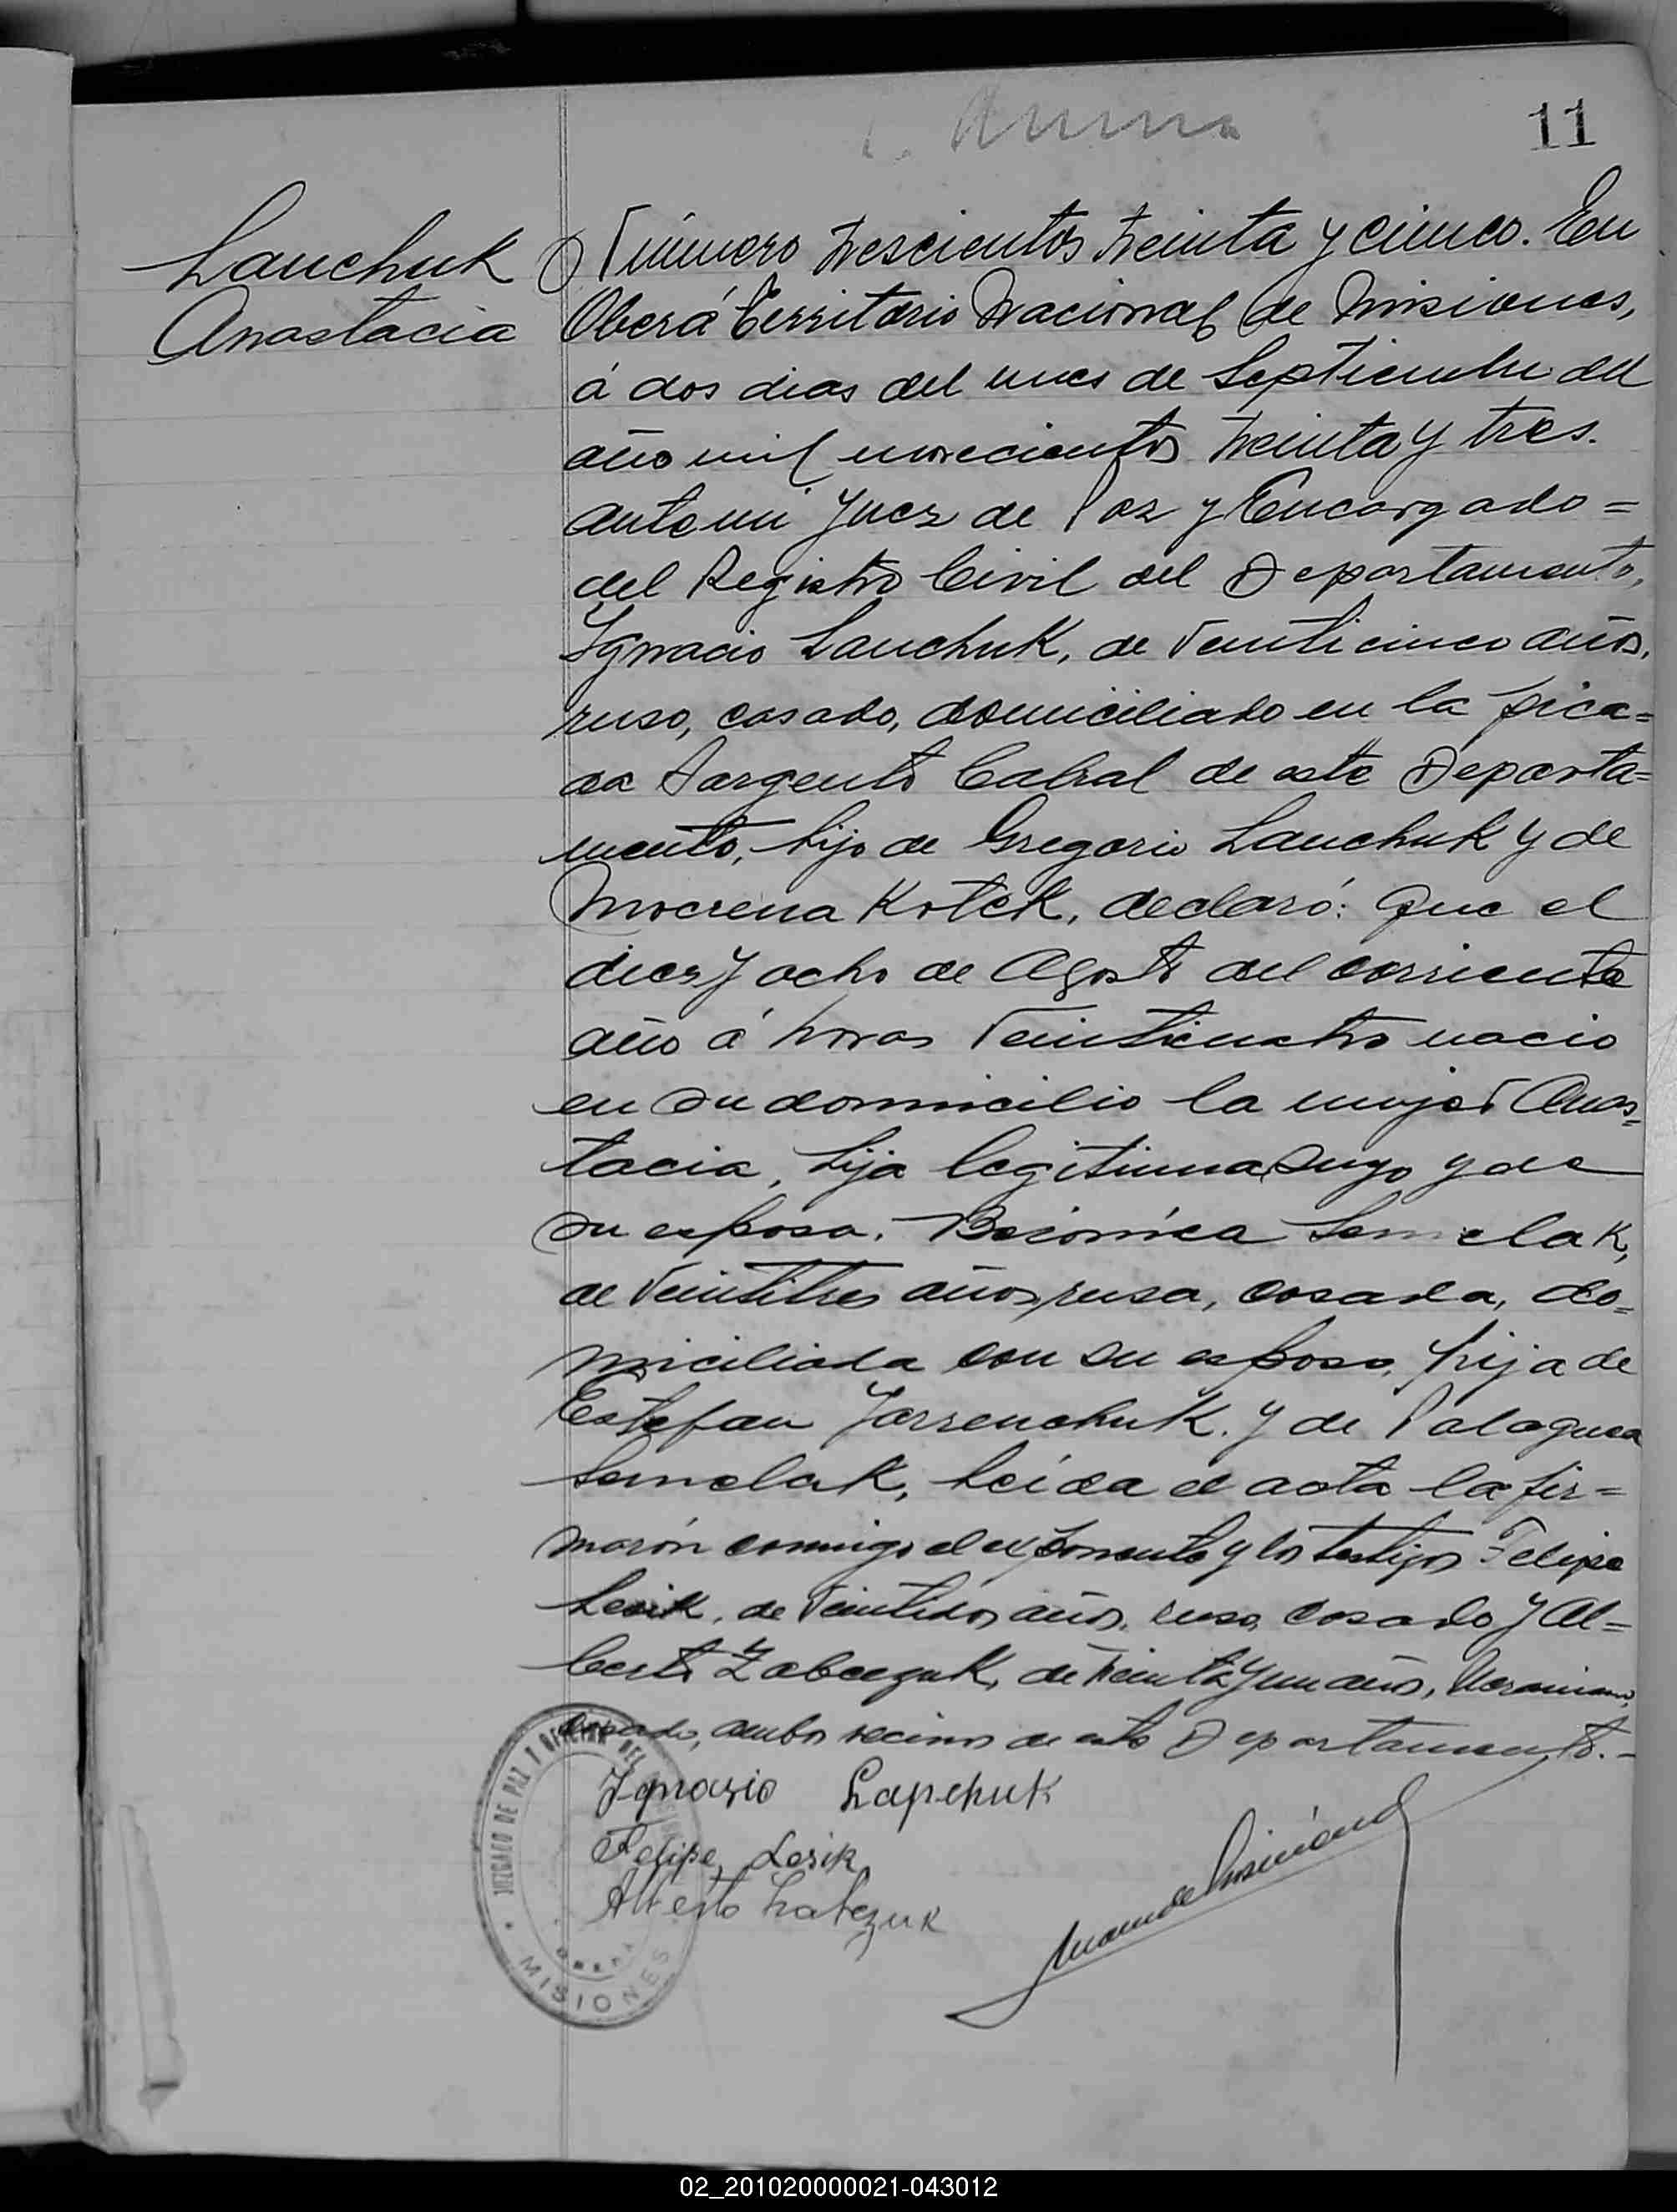 11
Lauchuk
Anastacia
Número trescientos treinta y cinco. En
Oberá Territorio Nacional de Misiones,
á dos dias del mes de Septiembre del
año mil novecientos treinta y tres.
ante mi Juez de Paz y Encargado=
del Registro Civil del Departamento,
Ygnacio Lauchuk, de Veinticinco años,
ruso, casado, domiciliado en la pica=
da Sargento Cabral de este Departa=
mento, hijo de Gregorio Lauchuk y de
Mocrena Kotek, declaró: Que el
diez y ocho de Agosto del corriente
año á horas Veinticuatro nació
en su domicilio la mujer Anas=
tacia, hija legitima suyo y de
su esposa. Beronica
de Veintitres años, rusa, casada, do=
miciliada con su esposo, hija de
Estefan Jarrenchuk. y de Palaguea
Semelak, Leída el acta la fir=
marón conmigo el exponente y los testigos Felipe
Lesik, de Veintidos años, ruso, casado y Al=
berto Zabcezuk, de treinta y un años, Ucraniano,
casado, ambos vecinos de este Departamento.-
Ygnazio Lapchuk
Felipe Lesik
Alberto
JUZGADO DE PAZ Y OFICINA DEL
OBERA
MISIONES
02_201020000021-043012